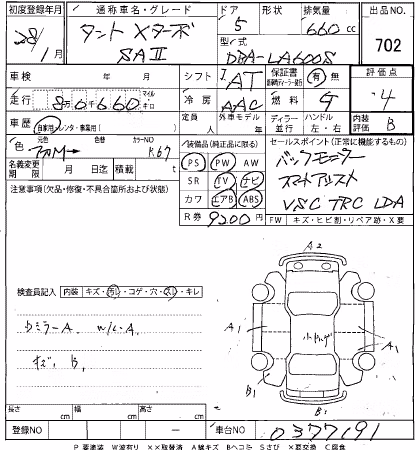 初度登録年月 通称車名・グレード ドア 形状 排気量 出品No.
28/1月 タント Xターボ SAⅡ 5 660cc 702
型式
DBA-LA600S
車検 年 月 シフト I AT 保証書 有 無 評価点
走行 80660 冷房 AAC 燃料 G 4
車歴 自家用 レンタ・事業用( ) 定員 人 外車モデル 年 ディーラー 並行 ハンドル 左・右 内装評価 B
色 元色 色替 カラーNo R67
名義変更期限 月 日迄 積載 t
装備品(純正品に限る)
PS PW AW
SR TV ナビ
カワ エアB ABS
R券 9200円
セールスポイント(正常に機能するもの)
バックモニター
スマートアシスト
VSC TRC LDA
FW キズ・ヒビ割・リペア跡・X要
注意事項(欠品・修復・不具合箇所および状態)
検査員記入 内装 キズ・汚レ・コゲ・穴・スレ・キレ
ウミラーA W/L・A
キズ、B1
A2
A1
A1
B1
B1
長さ cm 幅 cm 高さ cm
登録NO — 車台NO 0377191
P要塗装 W波有り XX取替済 A線キズ Bヘコミ Sさび X要交換 C腐食